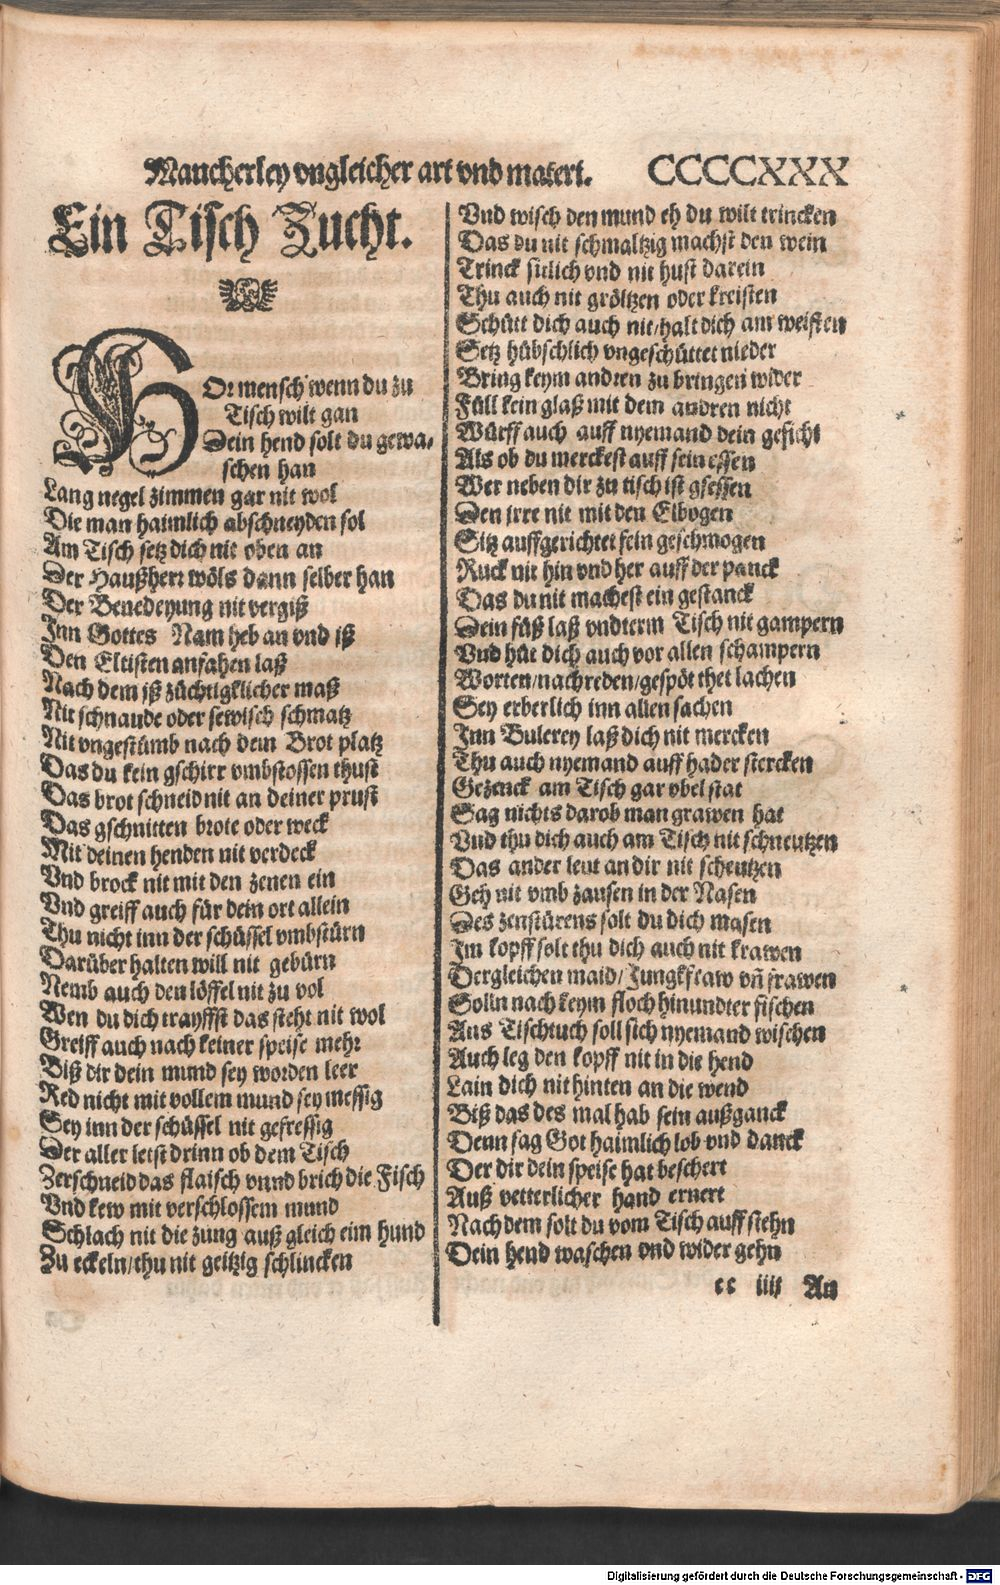 Mancherley vngleicher art vnd materi. CCCCXXX
Ein Tisch Zucht.
HOr mensch wenn du zu
Tisch wilt gan
Dein hend solt du gewa-
schen han
Lang negel zimmen gar nit wol
Die man haimlich abschneyden sol
Am Tisch setz dich nit oben an
Der Haußherr wöls dann selber han
Der Benedeyung nit vergiß
Inn Gottes Nam heb an vnd iß
Den Eltisten anfahen laß
Nach dem iß züchtigklicher maß
Nit schnaude oder sewisch schmatz
Nit vngestümb nach dem Brot platz
Das du kein gschirr vmbstossen thust
Das brot schneid nit an deiner prust
Das gschnitten brote oder weck
Mit deinen henden nit verdeck
Vnd brock nit mit den zenen ein
Vnd greiff auch für dein ort allein
Thu nicht inn der schüssel vmbstürn
Darüber halten will nit gebürn
Nemb auch den löffel nit zu vol
Wen du dich trayffst das steht nit wol
Greiff auch nach keiner speise mehr
Biß dir dein mund sey worden leer
Red nicht mit vollem mund sey messig
Sey inn der schüssel nit gefressig
Der aller letst drinn ob dem Tisch
Zerschneid das flaisch vnnd brich die Fisch
Vnd kew mit verschlossem mund
Schlach nit die zung auß gleich eim hund
Zu eckeln/thu nit geitzig schlincken
Vnd wisch den mund eh du wilt trincken
Das du nit schmaltzig machst den wein
Trinck sitlich vnd nit hust darein
Thu auch nit gröltzen oder kreisten
Schütt dich auch nit/halt dich am weisten
Setz hübschlich vngeschüttet nieder
Bring keym andren zu bringen wider
Füll kein glaß mit dem andren nicht
Würff auch auff nyemand dein gesicht
Als ob du merckest auff sein essen
Wer neben dir zu tisch ist gsessen
Den irre nit mit den Elbogen
Sitz auffgerichtet fein geschmogen
Ruck nit hin vnd her auff der panck
Das du nit machest ein gestanck
Dein füß laß vndterm Tisch nit gampern
Vnd hüt dich auch vor allen schampern
Worten/nachreden/gespöt thet lachen
Sey erberlich inn allen sachen
Inn Bulerey laß dich nit mercken
Thu auch nyemand auff hader stercken
Gezenck am Tisch gar vbel stat
Sag nichts darob man grawen hat
Vnd thu dich auch am Tisch nit schneutzen
Das ander leut an dir nit scheutzen
Geh nit vmb zausen in der Nasen
Des zenstürens solt du dich masen
Im kopff solt thu dich auch nit krawen
Dergleichen maid/Jungkfraw vñ frawen
Solln nach keym floch hinundter fischen
Ans Tischtuch soll sich nyemand wischen
Auch leg den kopff nit in die hend
Lain dich nit hinten an die wend
Biß das des mal hab sein außganck
Denn sag Got haimlich lob vnd danck
Der dir dein speise hat beschert
Auß vetterlicher hand ernert
Nach dem solt du vom Tisch auff stehn
Dein hend waschen vnd wider gehn
cc iiij An
Digitalisierung gefördert durch die Deutsche Forschungsgemeinschaft - DFG